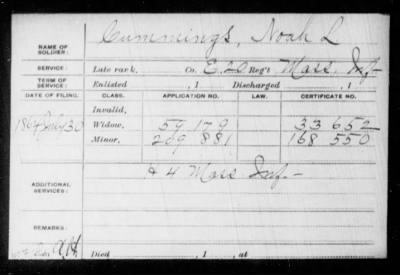 NAME OF SOLDIER: Cummings, Noah L
SERVICE: Late rank, Co. E. 20 Reg't Mass. Inf.
TERM OF SERVICE: Enlisted , 1 Discharged , 1
DATE OF FILING. CLASS. APPLICATION NO. LAW. CERTIFICATE NO.
Invalid,
1864 July 30 Widow, 59 179 33 652
Minor, 269 881 168 550
ADDITIONAL SERVICES: H 4 Mass Inf.
REMARKS:
Died , 1 , at